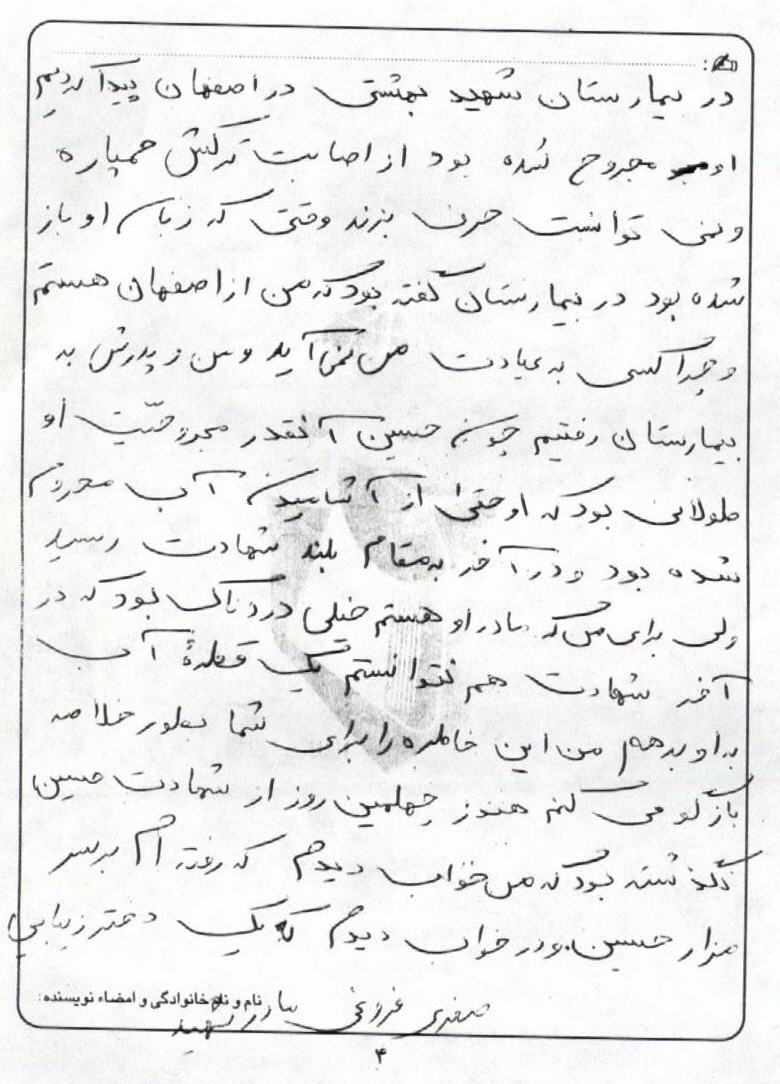 در بیمارستان شهید بهشتی در اصفهان پیدا کردیم
او مجروح شده بود از اصابت ترکش خمپاره
و نمی توانست حرف بزند وقتی که زبان او باز
شده بود در بیمارستان گفته بود که من از اصفهان هستم
و چرا کسی به عیادت من نمی آید و من و پدرش به
بیمارستان رفتیم چون حسین آنقدر مجروحیت او
طولانی بود که او حتی از آشامیدن آب محروم
شده بود و در آخر به مقام بلند شهادت رسید
ولی برای من که مادر او هستم خیلی دردناک بود که در
آخر شهادت هم نتوانستم یک قطرهٔ آب
به او بدهم من این خاطره را برای شما بطور خلاصه
بازگو می کنم هنوز چهلمین روز از شهادت حسین
نگذشته بود که من خواب دیدم که رفته ام بر سر
مزار حسین و در خواب دیدم که یک دختر زیبایی
نام و نام خانوادگی و امضاء نویسنده: صغری فروغی مادر شهید
۴